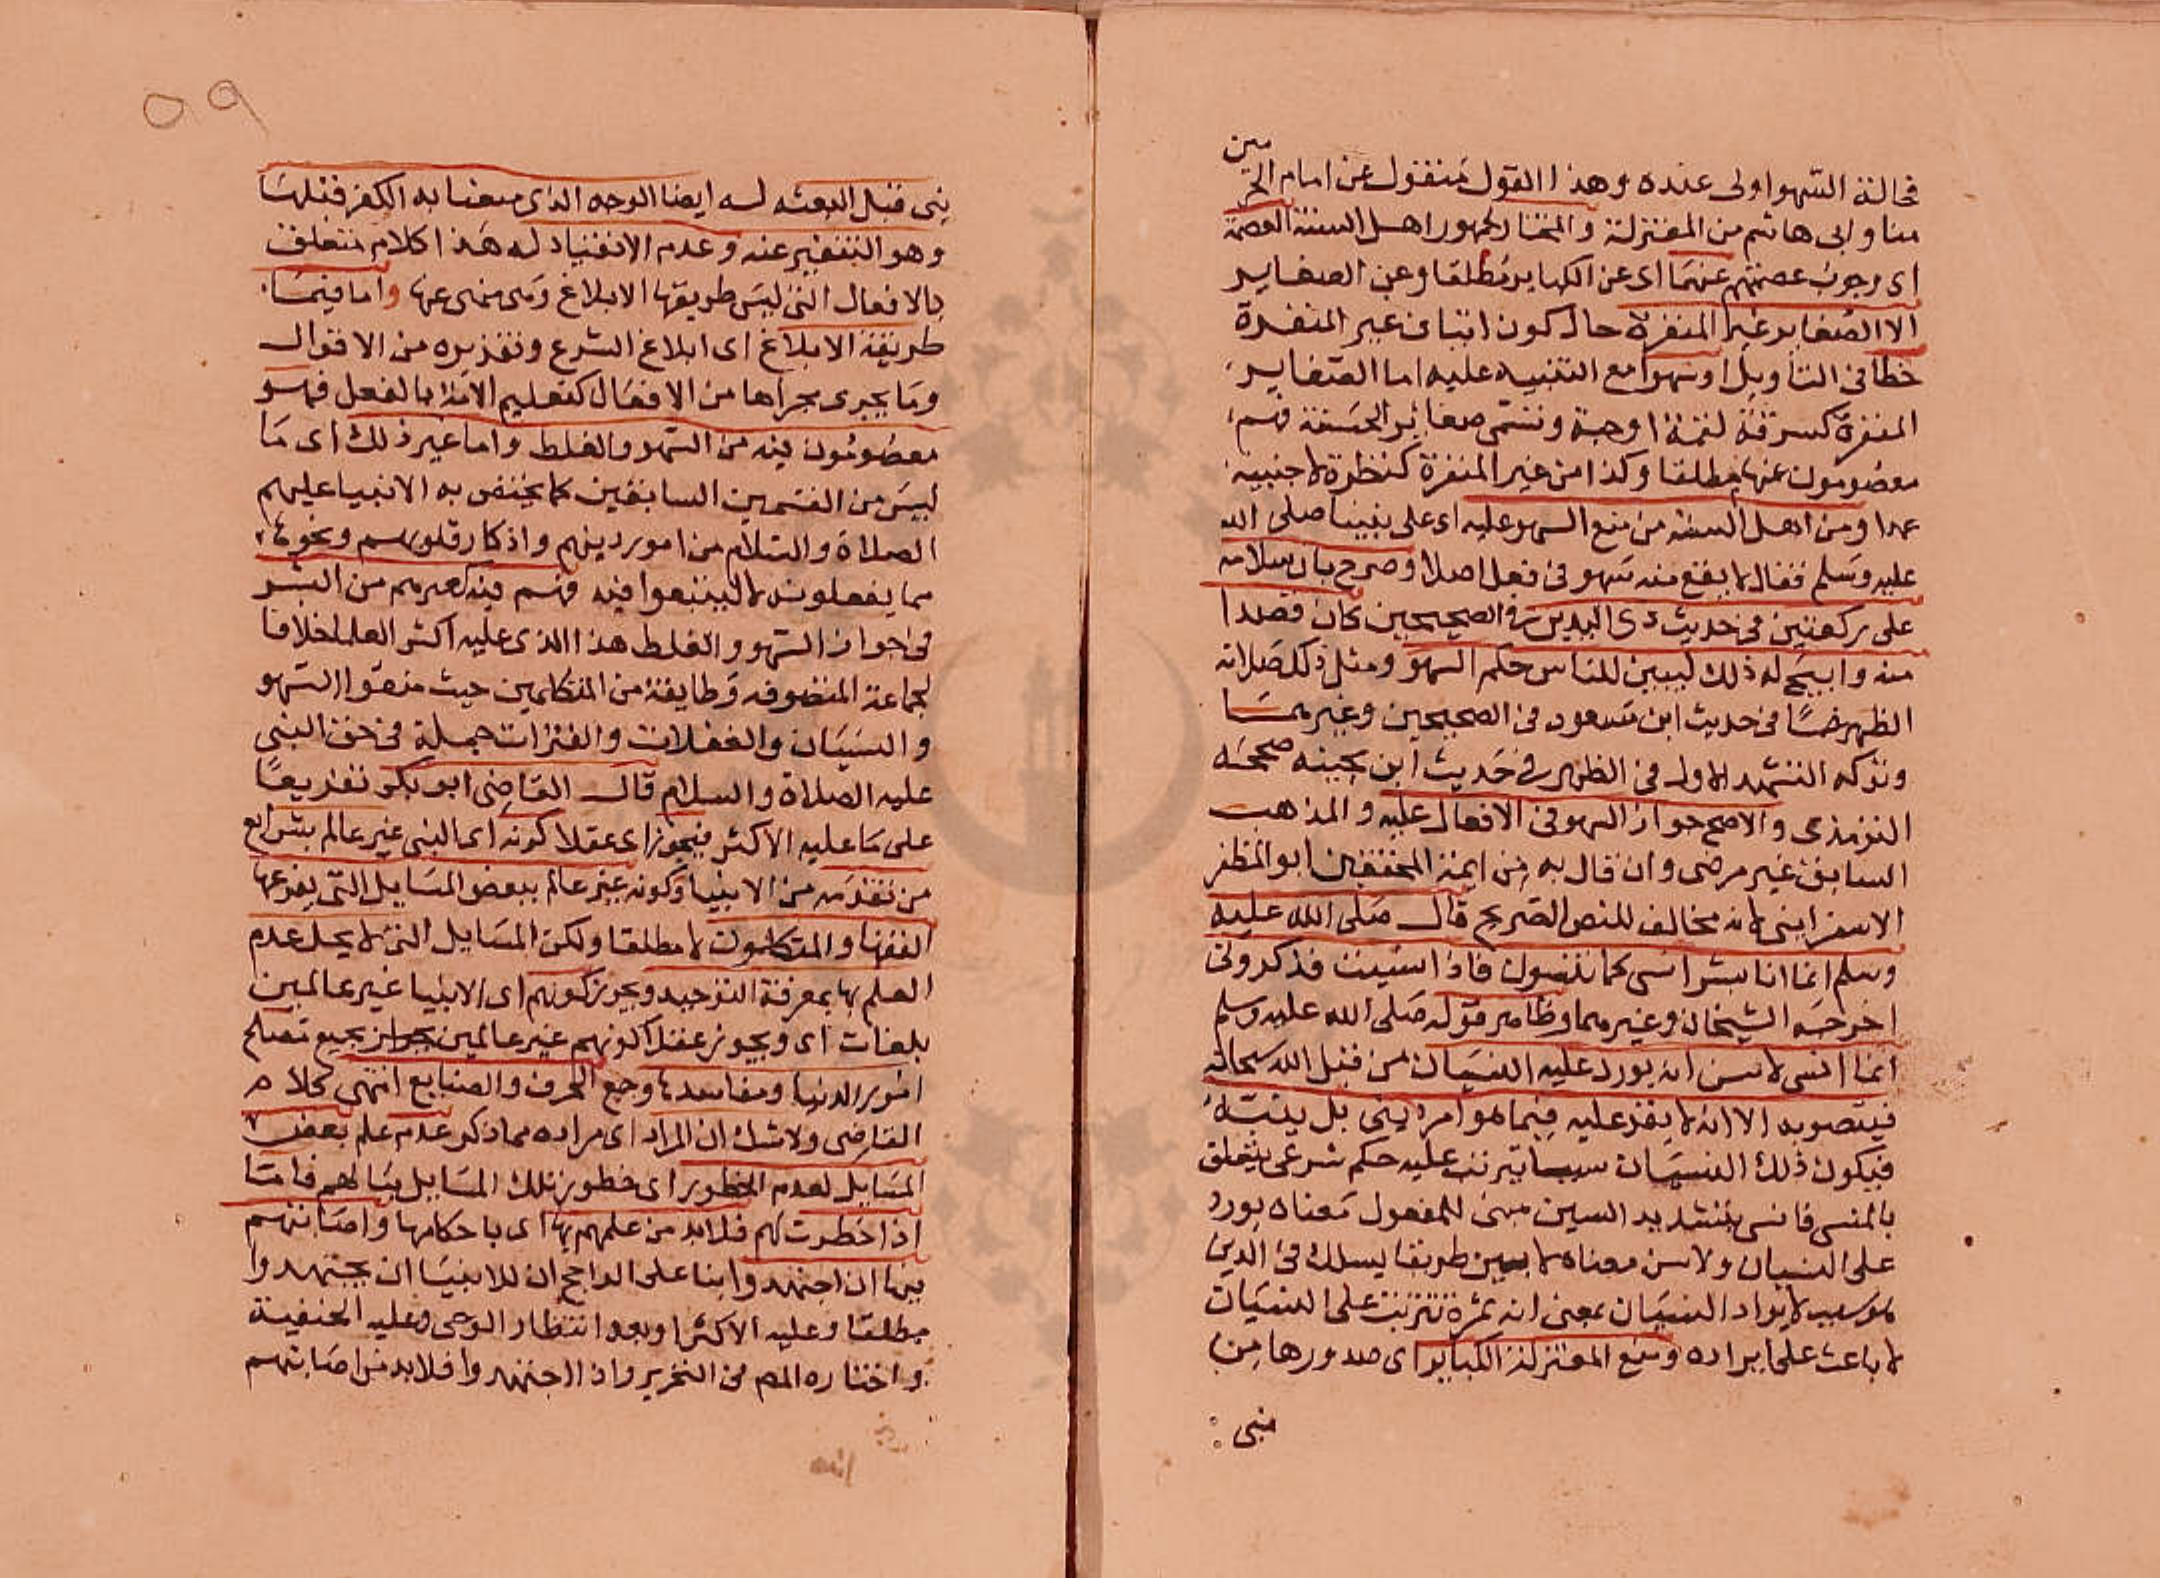 فحالة السهو اولى عنده وهذا القول منقول عن امام الحرمين
منا وابى هاشم من المعتزلة والمختار لجمهور اهل السنة العصمة
اى وجوب عصمتهم عنهما اى عن الكباير مطلقا وعن الصغاير
الا الصغاير غير المنفرة حال كون اتيان غير المنفرة
خطأ فى التاويل او سهوا مع التنبيه عليه اما الصغاير
المنفرة كسرقة لقمة او حبة وتسمى صغاير الخسة فهم
معصومون عنها مطلقا وكذا من غير المنفرة كنظرة لاجنبية
عمدا ومن اهل السنة من منع السهو عليه اى على نبينا صلى الله
عليه وسلم فقال لا يقع منه سهو فى فعل اصلا وصرح بان سلامه
على ركعتين فى حديث ذى اليدين فى الصحيحين كان قصدا
منه وابيح له ذلك ليبين للناس حكم السهو ومثل ذلك صلاته
الظهر خمسا فى حديث ابن مسعود فى الصحيحين وغيرهما
وتركه التشهد الاول فى الظهر فى حديث ابن بحينه صححه
الترمذى والاصح جواز السهو فى الافعال عليه والمذهب
السابق غير مرضى وان قال به من ايمة المحققين ابو المظفر
الاسفراينى لانه مخالف للنص الصريح قال صلى الله عليه
وسلم انما انا بشر انسى كما تنسون فاذا نسيت فذكرونى
اخرجه الشيخان وغيرهما وظاهر قوله صلى الله عليه وسلم
انما انسى لاسن ان يورد عليه النسيان من قبل الله سبحانه
فيتصو به الا انه لا يقر عليه فيما هو امر دينى بل ينبه
فيكون ذلك النسيان سببا يترتب عليه حكم شرعى يتعلق
بالمنسى فانسى بتشديد السين مبنى للمفعول معناه يورد
على النسيان ولاسن معناه لابين طريقا يسلك فى الدين
هو سبب لايراد النسيان بمعنى انه ثمرة تترتب على النسيان
لا باعث على ايراده ومنع المعتزلة الكباير اى صدورها من
نبى
٥٩
نبى قبل البعثه له ايضا الوجه الذى منعنا به الكفر قبلها
وهو التنفير عنه وعدم الانقياد له هذا كلام متعلق
بالافعال التى ليس طريقها الابلاغ ومن نهى عنها واما فيما
طريقة الابلاغ اى ابلاغ الشرع وتقريره من الاقوال
وما يجرى مجراها من الافعال كتعليم الامة بالفعل فهو
معصومون فيه من السهو والغلط واما غير ذلك اى ما
ليس من القسمين السابقين كما يختص به الانبيا عليهم
الصلاة والسلام من امور دينهم واذكار قلوبهم ونحوها
مما يفعلونه لا ليتبعوا فيه فهم فيه كغيرهم من البشر
فى جواز السهو والغلط هذا الذى عليه اكثر العلما خلافا
لجماعة المتصوفه وطايفة من المتكلمين حيث منعوا السهو
والنسيان والغفلات والفترات جملة فى حق النبى
عليه الصلاة والسلام قال القاضى ابو بكر تفريعا
على ما عليه الاكثر فيجوز اى عقلا كونه اى النبى غير عالم بشرايع
من تقدمه من الانبيا وكونه غير عالم ببعض المسايل التى يفرعها
الفقها والمتكلمون لا مطلقا ولكن المسايل التى لا يحل عدم
العلم بها بمعرفة التوحيد ويجوز كونهم اى الانبيا غير عالمين
بلغات اى ويجوز عقلا كونهم غير عالمين بجميع مصالح
امور الدنيا ومفاسدها وجميع الحرف والصنايع انتهى كلام
القاضى ولا شك ان المراد اى مراده مما ذكر عدم علم بعض
المسايل لعدم الخطور اى خطور تلك المسايل ببالهم فاما
اذا خطرت لهم فلابد من علمهم بها اى باحكامها واصابتهم
فيها ان اجتهدوا بنا على الراجح ان للانبيا ان يجتهدوا
مطلقا وعليه الاكثر او بعد انتظار الوحى وعليه الحنفية
واختاره المص فى التحرير واذا اجتهدوا فلابد من اصابتهم